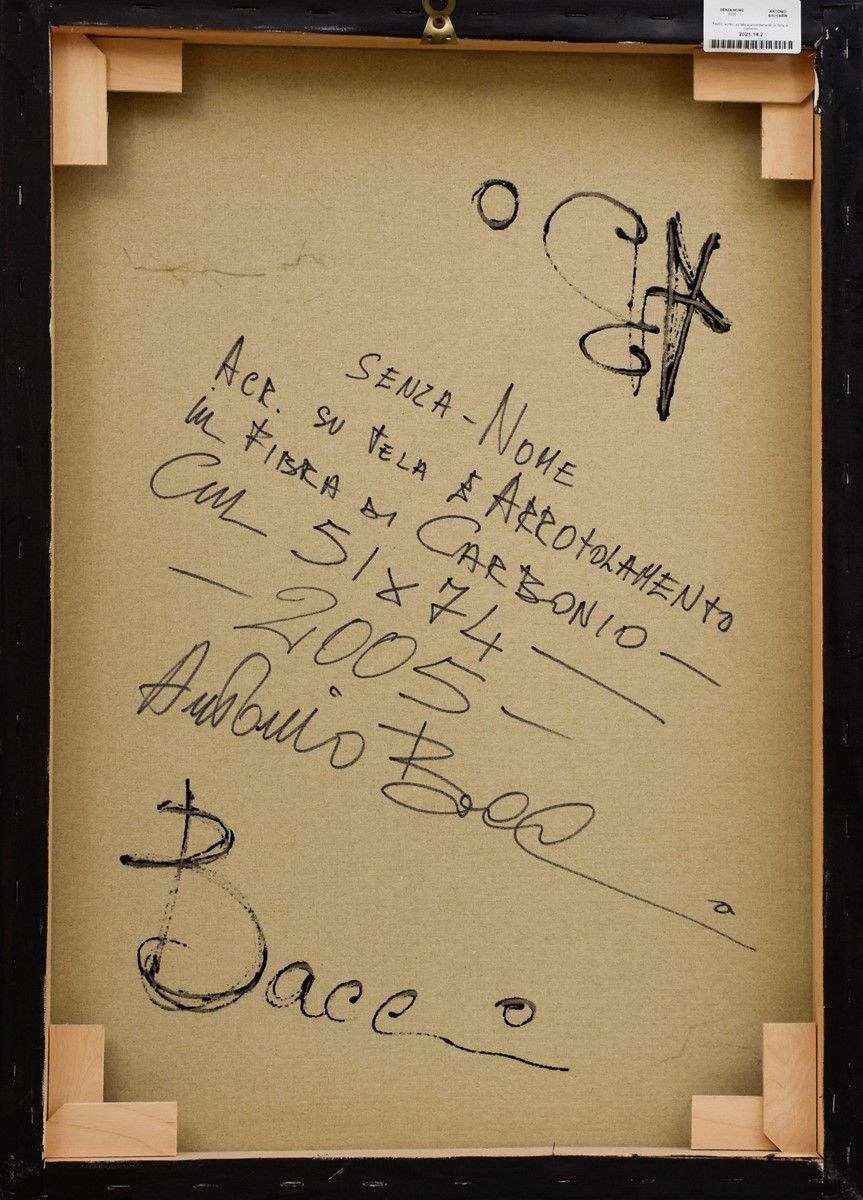 SENZA NOME ANTONIO
2005 BACCARIN
2021.14.2
SENZA-NOME
ACR. SU TELA E ARROTOLAMENTO
in FIBRA DI CARBONIO —
CM 51 x 74 —
— 2005 —
Antonio Bacc
Bacc